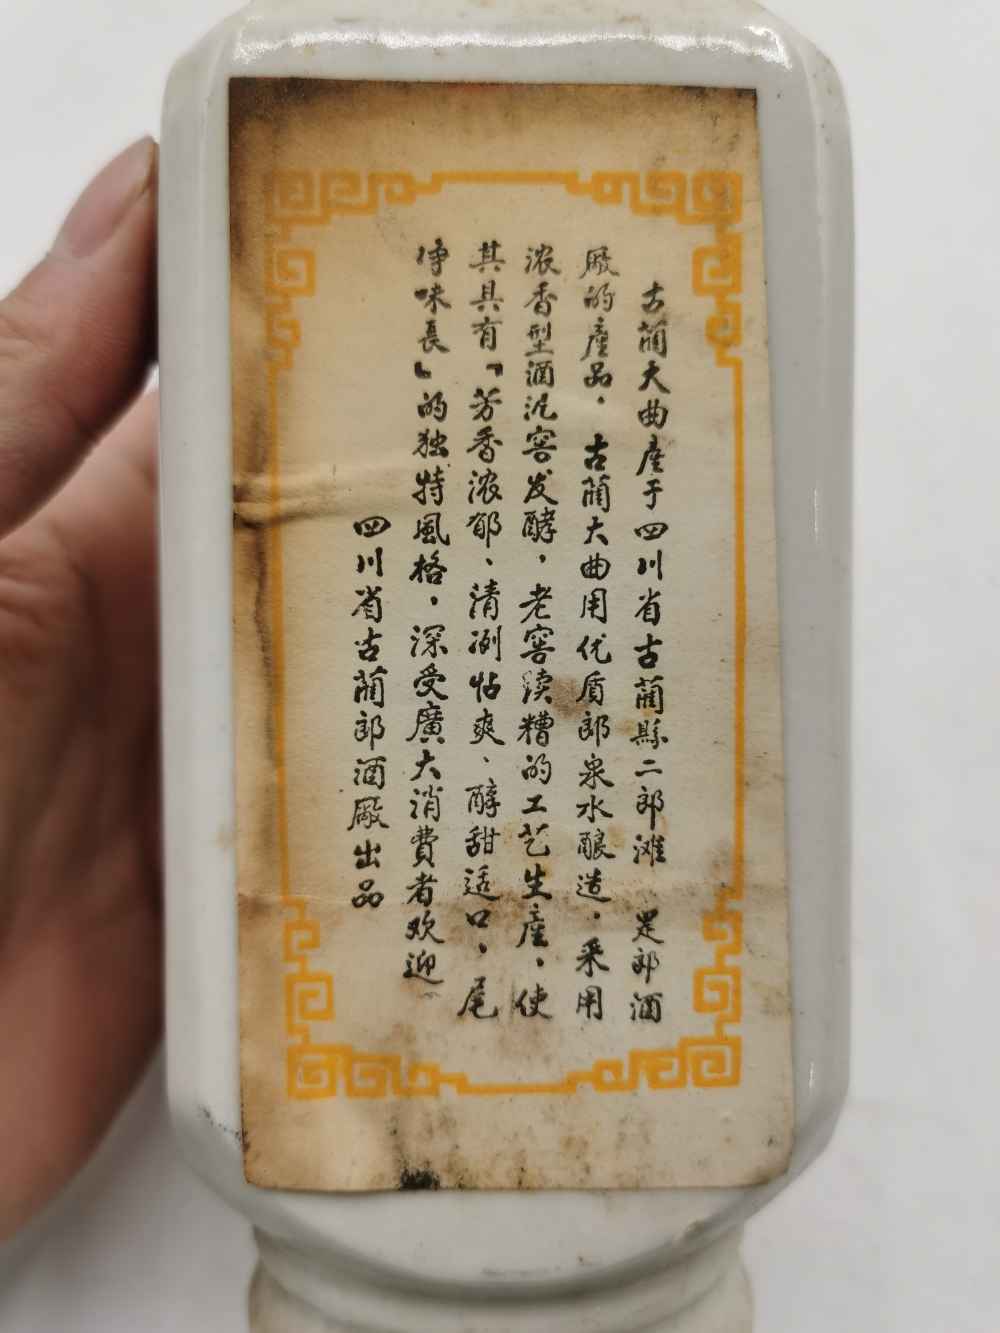 古蔺大曲産于四川省古蔺縣二郎滩 是郎酒
廠的產品。古蔺大曲用优质郎泉水酿造，采用
浓香型酒泥窖发酵，老窖续糟的工艺生産，使
其具有『芳香浓郁、清冽怗爽、醇甜适口，尾
净味長』的独特風格，深受廣大消費者欢迎
四川省古蔺郎酒廠出品